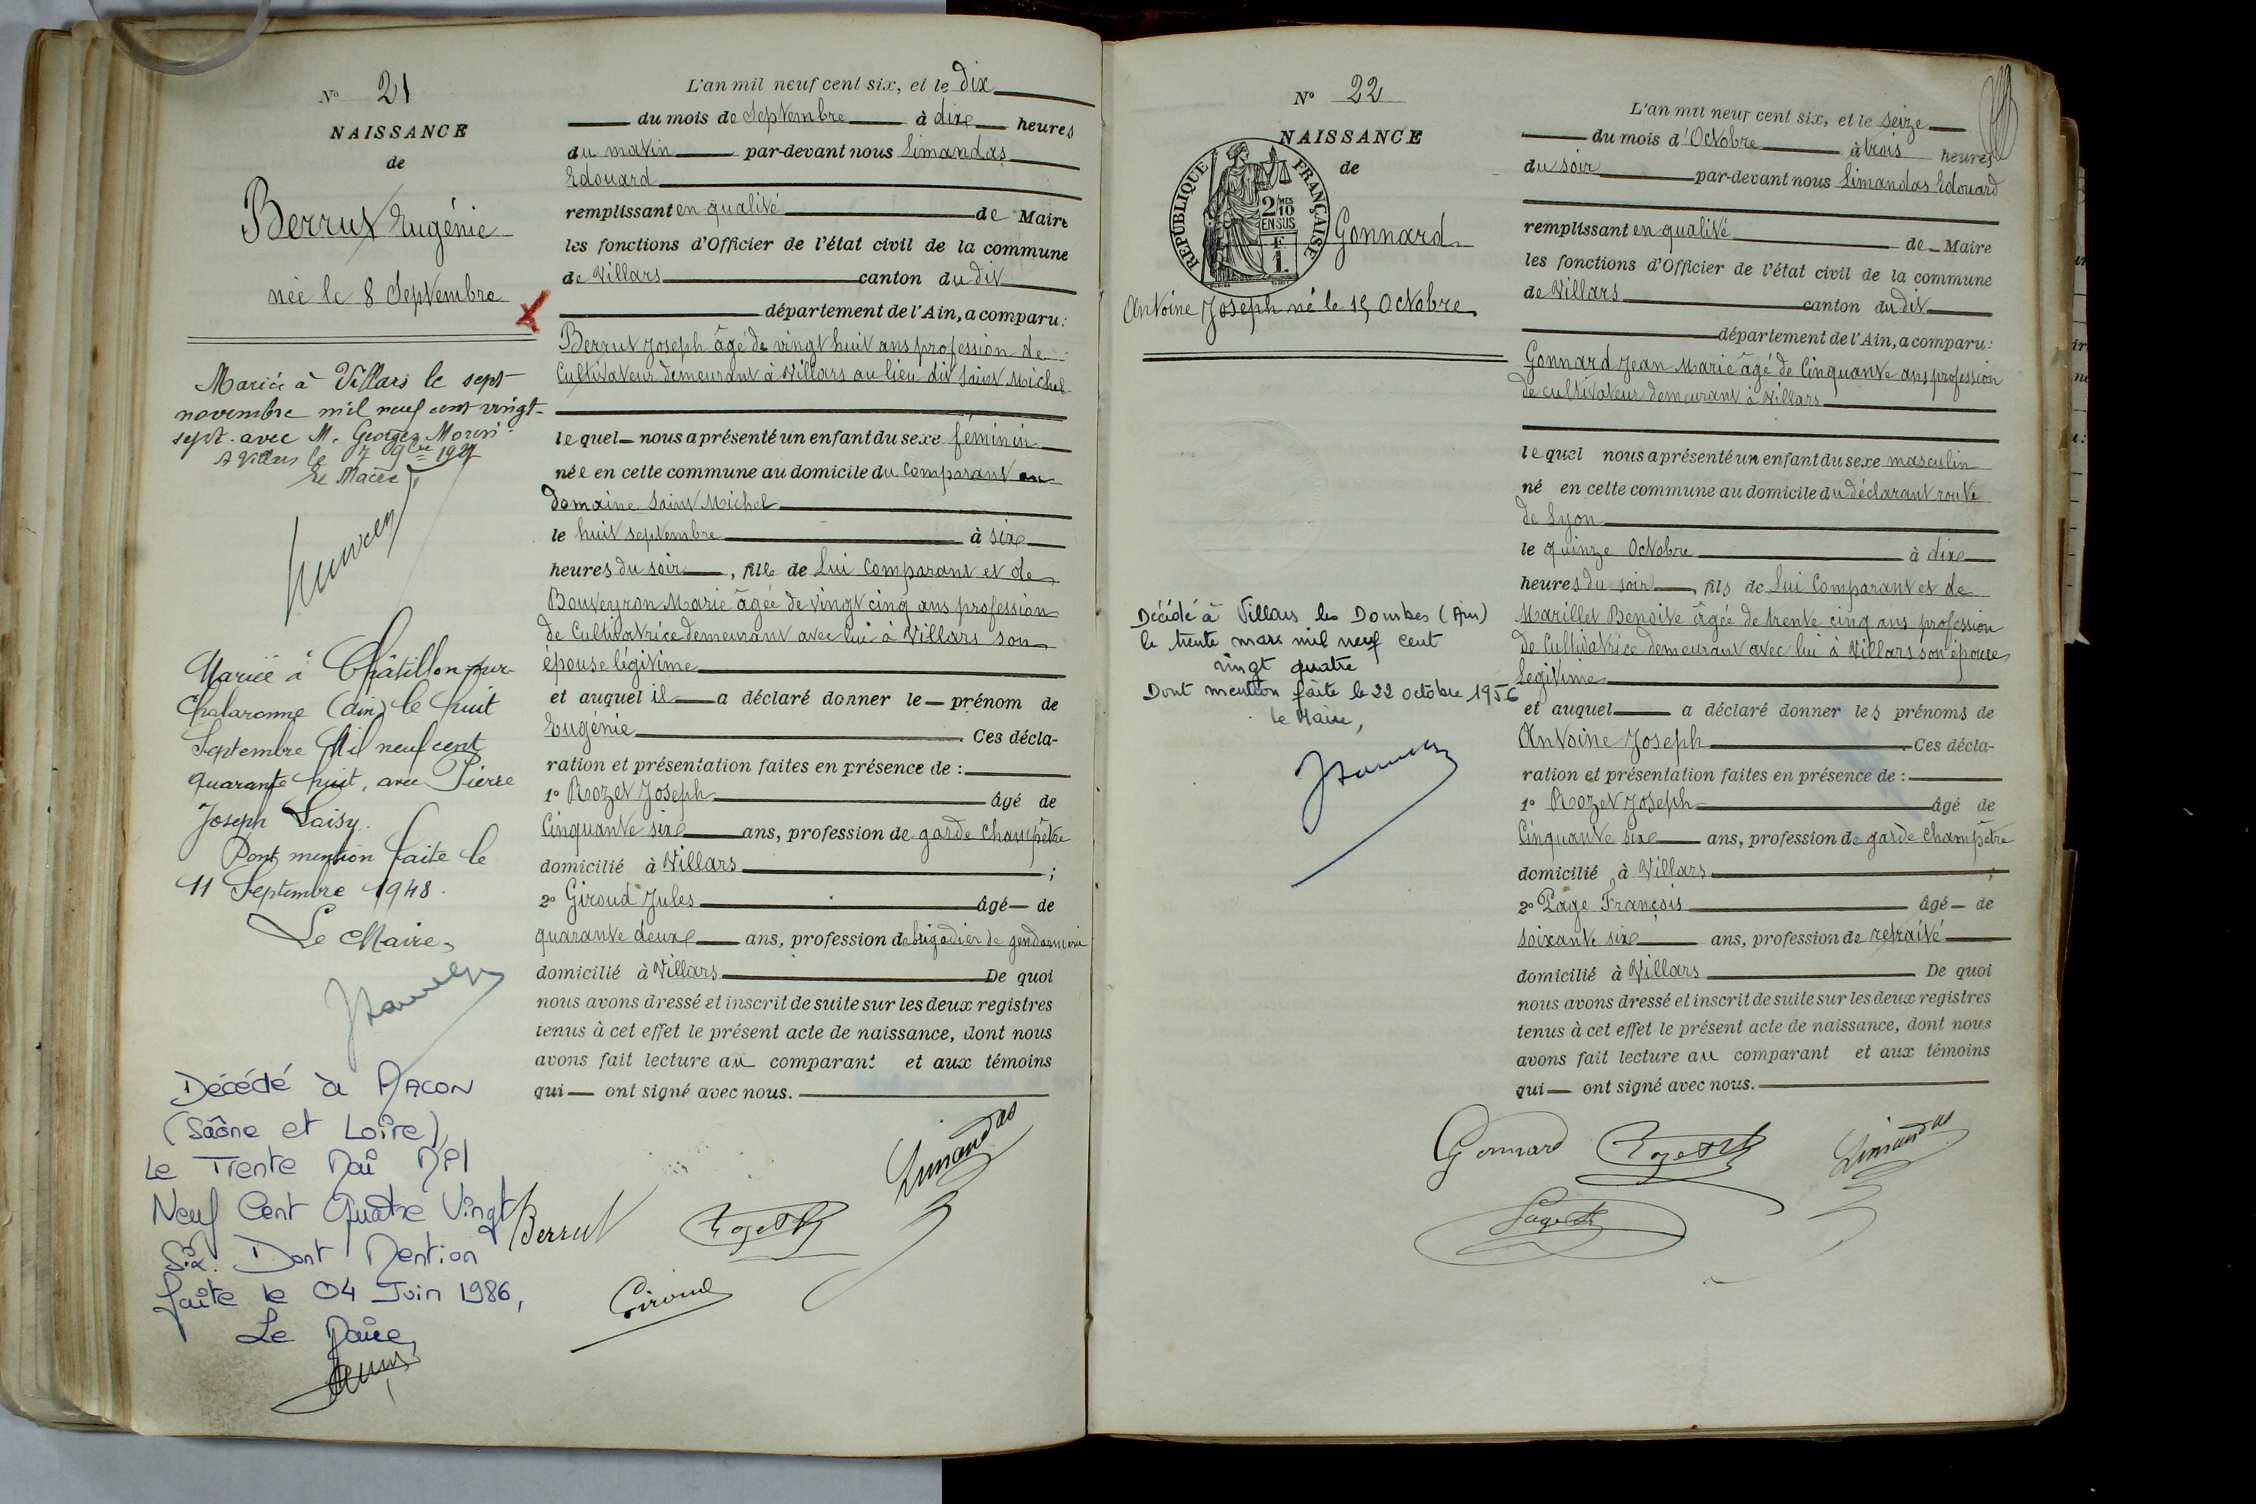 N° 21
NAISSANCE
de
Berrut Eugénie
née le 8 Septembre
Mariée à Villars le sept
novembre mil neuf cent vingt-
sept. avec M. Georges
A Villars le 7 9bre 1927
Le Maire
Mariée à Châtillon-sur-
Chalaronne (Ain) le huit
Septembre Mil neuf cent
quarante huit, avec Pierre
Joseph Laisy.
Dont mention faite le
11 Septembre 1948.
Le Maire,
Décédé à MACON
(Saône et Loire),
Le Trente Mai Mil
Neuf Cent Quatre Vingt
Six. Dont Mention
faite le 04 Juin 1986,
Le Maire,
L'an mil neuf cent six, et le dix
du mois de Septembre à dix heures
du matin par-devant nous Limandas
Edouard
remplissant en qualité de Maire
les fonctions d'Officier de l'état civil de la commune
de Villars canton du dit
département de l'Ain, a comparu:
Berrut Joseph âgé de vingt huit ans profession de
Cultivateur demeurant à Villars au lieu dit Saint Michel
lequel nous a présenté un enfant du sexe féminin
née en cette commune au domicile du comparant au
domaine Saint Michel
le huit septembre à six
heures du soir, fille de Lui Comparant et de
Bouveyron Marie âgée de vingt cinq ans profession
de Cultivatrice demeurant avec lui à Villars son
épouse légitime
et auquel il a déclaré donner le prénom de
Eugénie. Ces décla-
ration et présentation faites en présence de :
1° Rozet Joseph âgé de
Cinquante six ans, profession de garde champêtre
domicilié à Villars ;
2° Giroud Jules âgé de
quarante deux ans, profession de brigadier de gendarmerie
domicilié à Villars De quoi
nous avons dressé et inscrit de suite sur les deux registres
tenus à cet effet le présent acte de naissance, dont nous
avons fait lecture au comparant et aux témoins
qui ont signé avec nous.
Limandas
Berrut Rozet
Giroud
N° 22
NAISSANCE
de
RÉPUBLIQUE FRANÇAISE
2/10 MES
EN SUS
F
1.
Gonnard
Antoine Joseph né le 15 Octobre
Décédé à Villars les Dombes (Ain)
le trente mars mil neuf cent
vingt quatre
Dont mention faite le 22 octobre 1956
le Maire,
L'an mil neuf cent six, et le seize
du mois d'Octobre à trois heures
du soir par-devant nous Limandas Edouard
remplissant en qualité de Maire
les fonctions d'Officier de l'état civil de la commune
de Villars canton du dit
département de l'Ain, a comparu:
Gonnard Jean Marie âgé de Cinquante ans profession
de cultivateur demeurant à Villars
lequel nous a présenté un enfant du sexe masculin
né en cette commune au domicile du déclarant route
de Lyon
le quinze Octobre à dix
heures du soir, fils de Lui Comparant et de
Marillet Benoite âgée de trente cinq ans profession
de Cultivatrice demeurant avec lui à Villars son épouse
légitime
et auquel a déclaré donner les prénoms de
Antoine Joseph. Ces décla-
ration et présentation faites en présence de :
1° Rozet Joseph âgé de
Cinquante six ans, profession de garde champêtre
domicilié à Villars ;
2° Page François âgé de
soixante six ans, profession de retraité
domicilié à Villars De quoi
nous avons dressé et inscrit de suite sur les deux registres
tenus à cet effet le présent acte de naissance, dont nous
avons fait lecture au comparant et aux témoins
qui ont signé avec nous.
Gonnard Rozet Limandas
Page